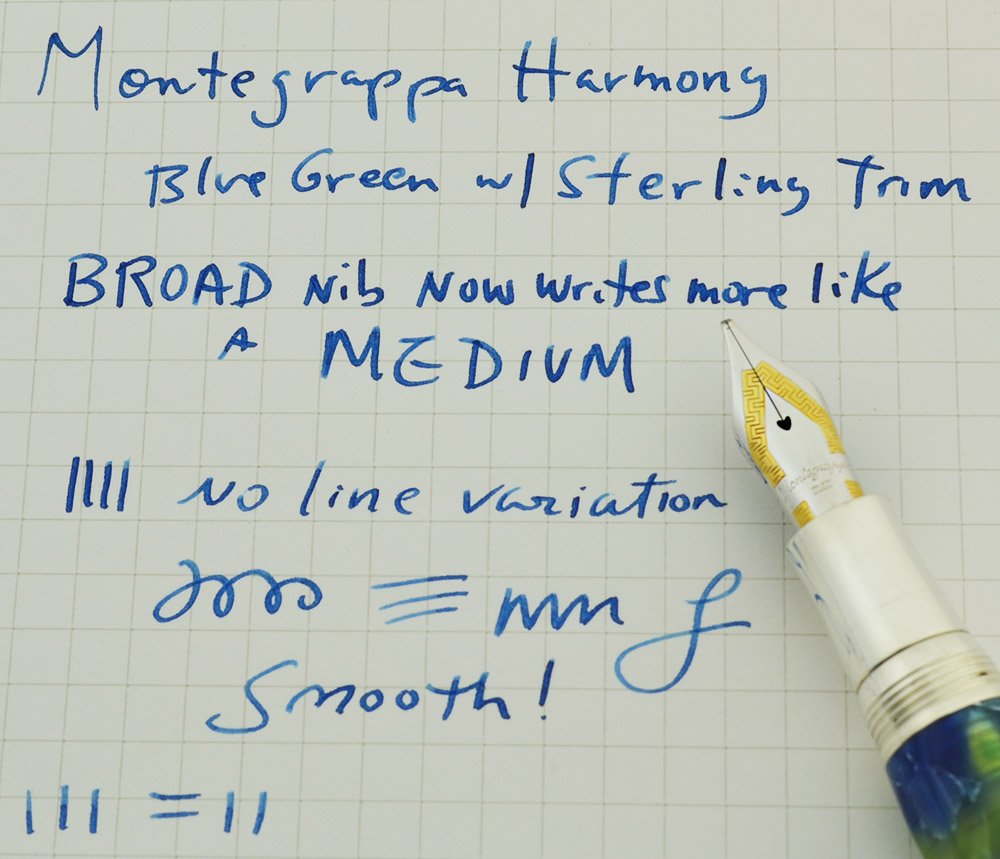 Montegrappa Harmony
Blue Green w/ Sterling Trim
BROAD Nib Now writes more like
A MEDIUM
No line variation
mn
Smooth!